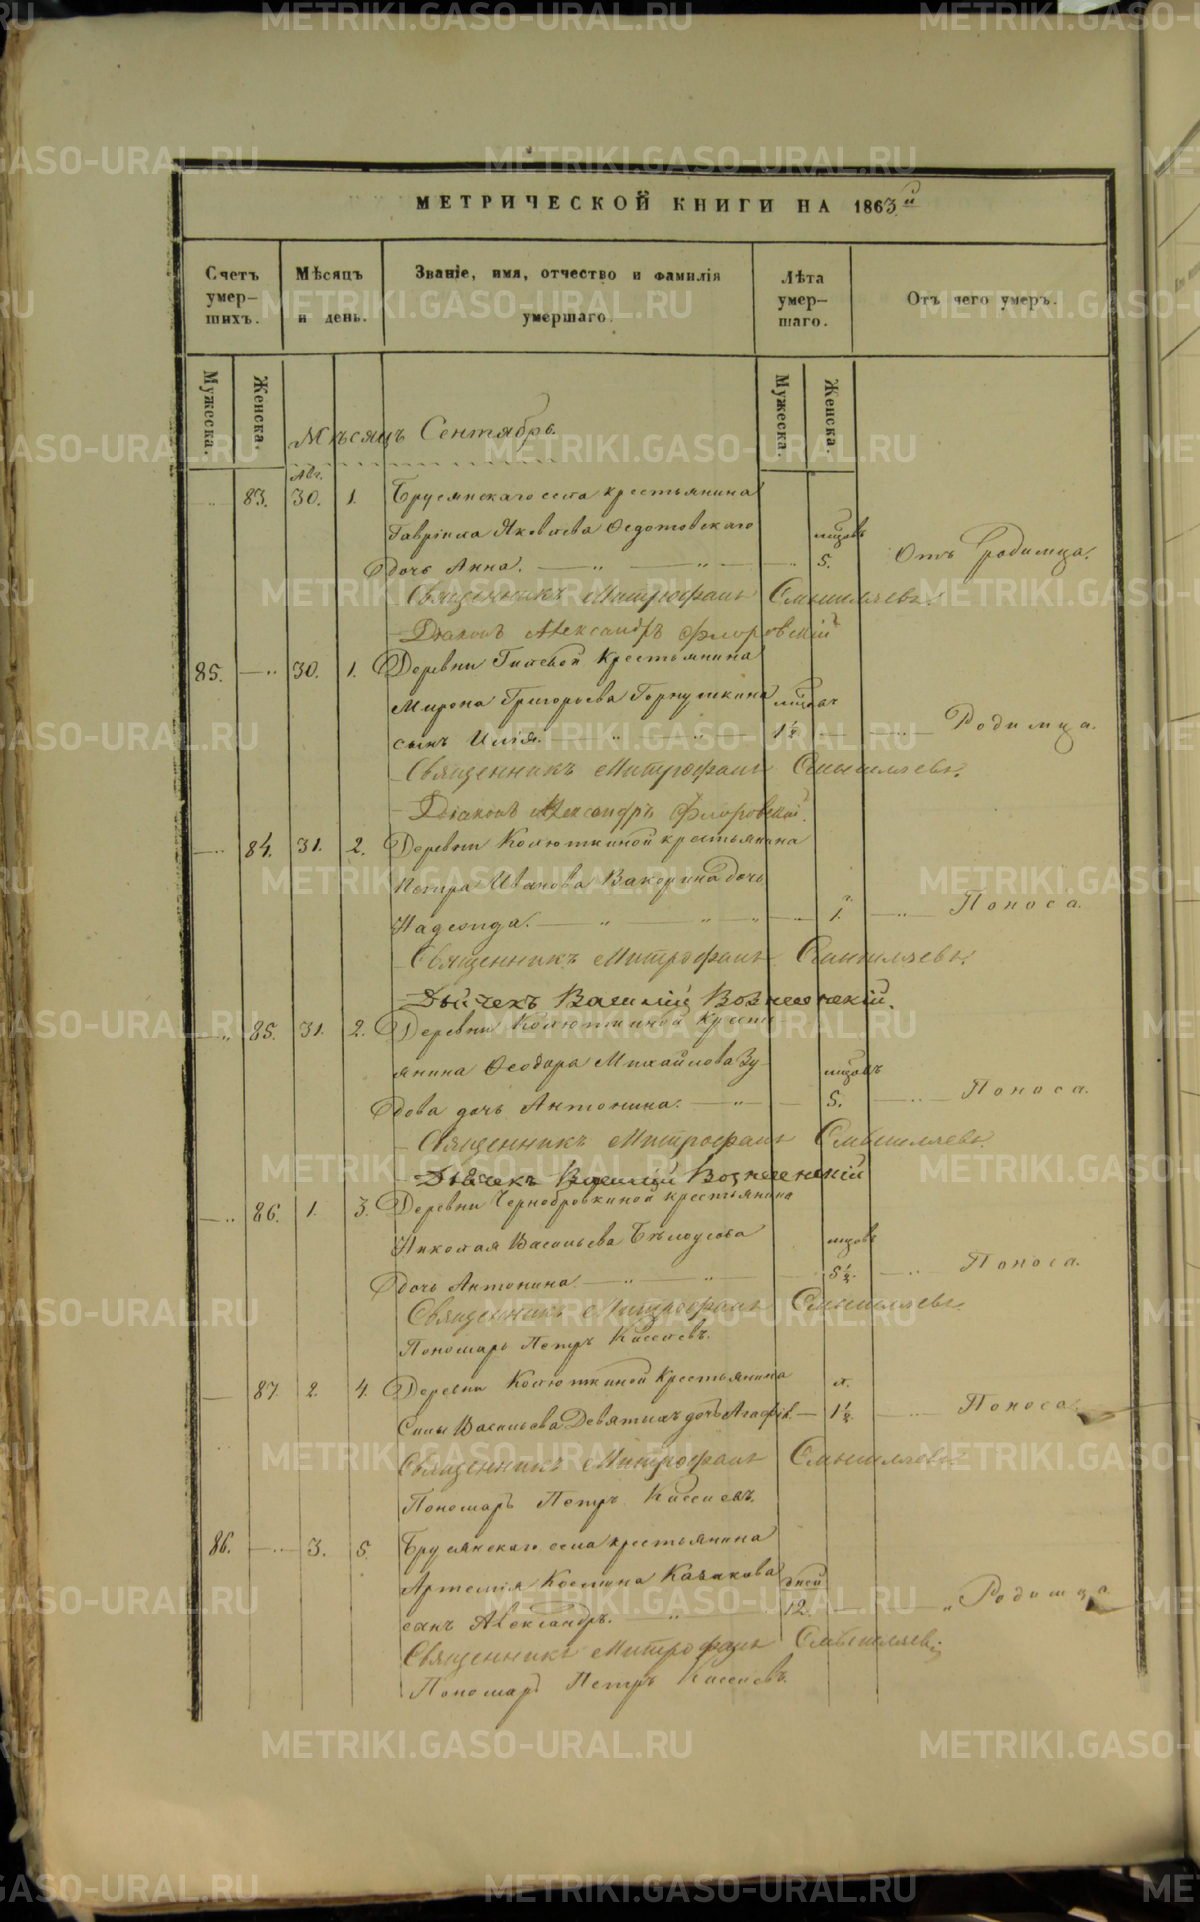 МЕТРИЧЕСКОЙ КНИГИ НА 1863й
Счетъ умер-шихъ.
Мѣсяцъ и день.
Званіе, имя, отчество и фамилія умершаго.
Лѣта умер-шаго.
Отъ чего умеръ.
Мужеска.
Женска.
Мужеска.
Женска.
Мѣсяцъ Сентябрь.
Авг.
83. 30. 1. Брусянскаго села крестьянина
Гавріила Яковлева Ѳедотовскаго мѣсяцовъ
дочь Анна. 5. Отъ Родимца.
Священникъ Митрофанъ Смышляевъ.
Діаконъ Александръ Флоровскій
85. 30. 1. Деревни Гилевой Крестьянина
Мирона Григорьева
сынъ Илія. 1½ Родимца.
Священникъ Митрофанъ Смышляевъ.
Діаконъ Александръ Флоровскій.
84. 31. 2. Деревни Колюткиной крестьянина
Петра Иванова Вакорина дочь
Надежда. 1. Поноса.
Священникъ Митрофанъ Смышляевъ.
Дьячекъ Василій Вознесенскій.
85. 31. 2. Деревни Колюткиной кресть-
янина Ѳеодора Михайлова Зу-
дова дочь Антонина. 5. Поноса.
Священникъ Митрофанъ Смышляевъ.
Дьячекъ Василій Вознесенскій
86. 1. 3. Деревни Чернобровкиной крестьянина
Николая Васильева Бѣлоусова
дочь Антонина 5½. Поноса.
Священникъ Митрофанъ Смышляевъ.
Пономарь Петръ Киселевъ.
87. 2. 4. Деревни Колюткиной Крестьянина
Силы Васильева Девятыхъ дочь 1½. Поноса.
Священникъ Митрофанъ Смышляевъ
Пономарь Петръ Киселевъ.
86. 3. 5. Брусянскаго села крестьянина
Артемія Космина Казакова дней
сынъ Александръ. 12. Родимца.
Священникъ Митрофанъ Смышляевъ
Пономарь Петръ Киселевъ.
METRIKI.GASO-URAL.RU